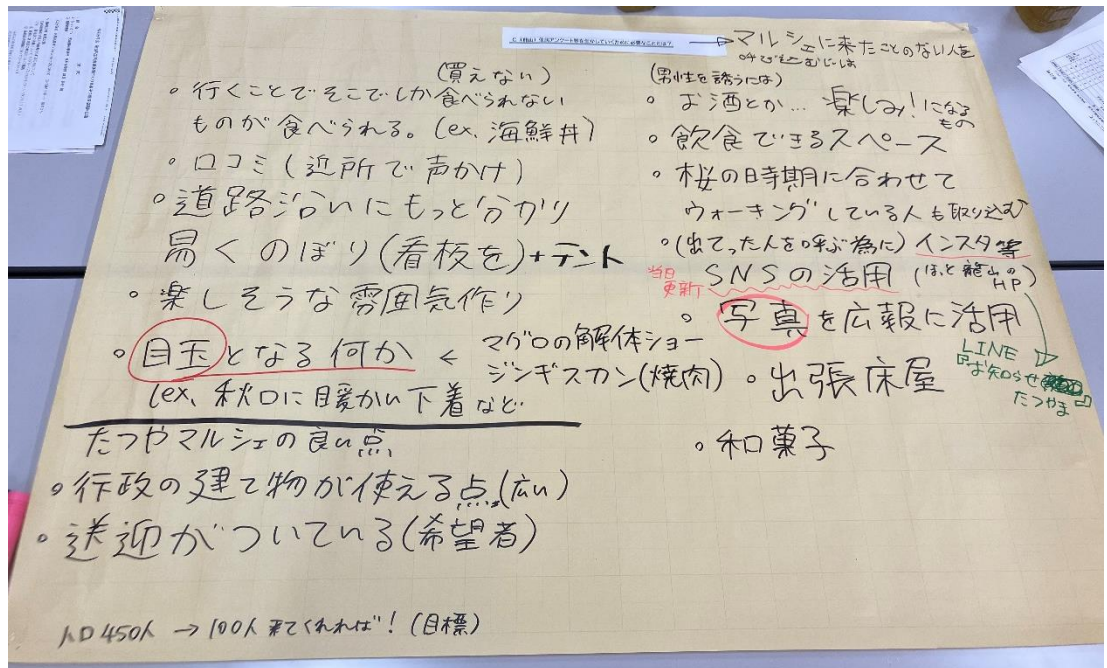 →マルシェに来たことのない人を
呼び込むには
(買えない)
・行くことでそこでしか食べられない
ものが食べられる。(ex. 海鮮丼)
・口コミ(近所で声かけ)
・道路沿いにもっと分かり
易くのぼり(看板を)+テント
・楽しそうな雰囲気作り
・目玉となる何か ← マグロの解体ショー
ジンギスカン(焼肉)
(ex. 秋口に暖かい下着など
たつやマルシェの良い点
・行政の建て物が使える点。(広い)
・送迎がついている(希望者)
人口450人 → 100人来てくれれば!(目標)
(男性を誘うには)
・お酒とか… 楽しみ!になる
もの
・飲食できるスペース
・桜の時期に合わせて
ウォーキングしている人も取り込む
・(出てった人を呼ぶ為に)インスタ等
当日
更新
SNSの活用 (ほっと龍山の
HP)
・写真を広報に活用
LINE
『お知らせ
たつやま』
・出張床屋
・和菓子